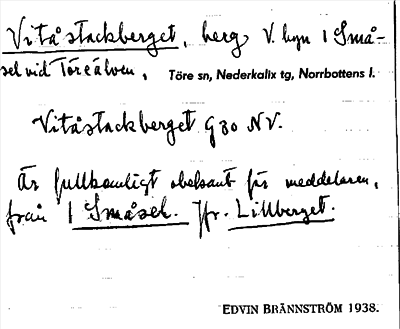 Vitåstackberget, berg V. hgn 1 Små-
sel vid Töreälven. Töre sn, Nederkalix tg, Norrbottens l.
Vitåstackberget G30 NV.
Är fullkomligt obekant för meddelaren,
från 1 Småsel. Jfr. Lillberget.
EDVIN BRÄNNSTRÖM 1938.